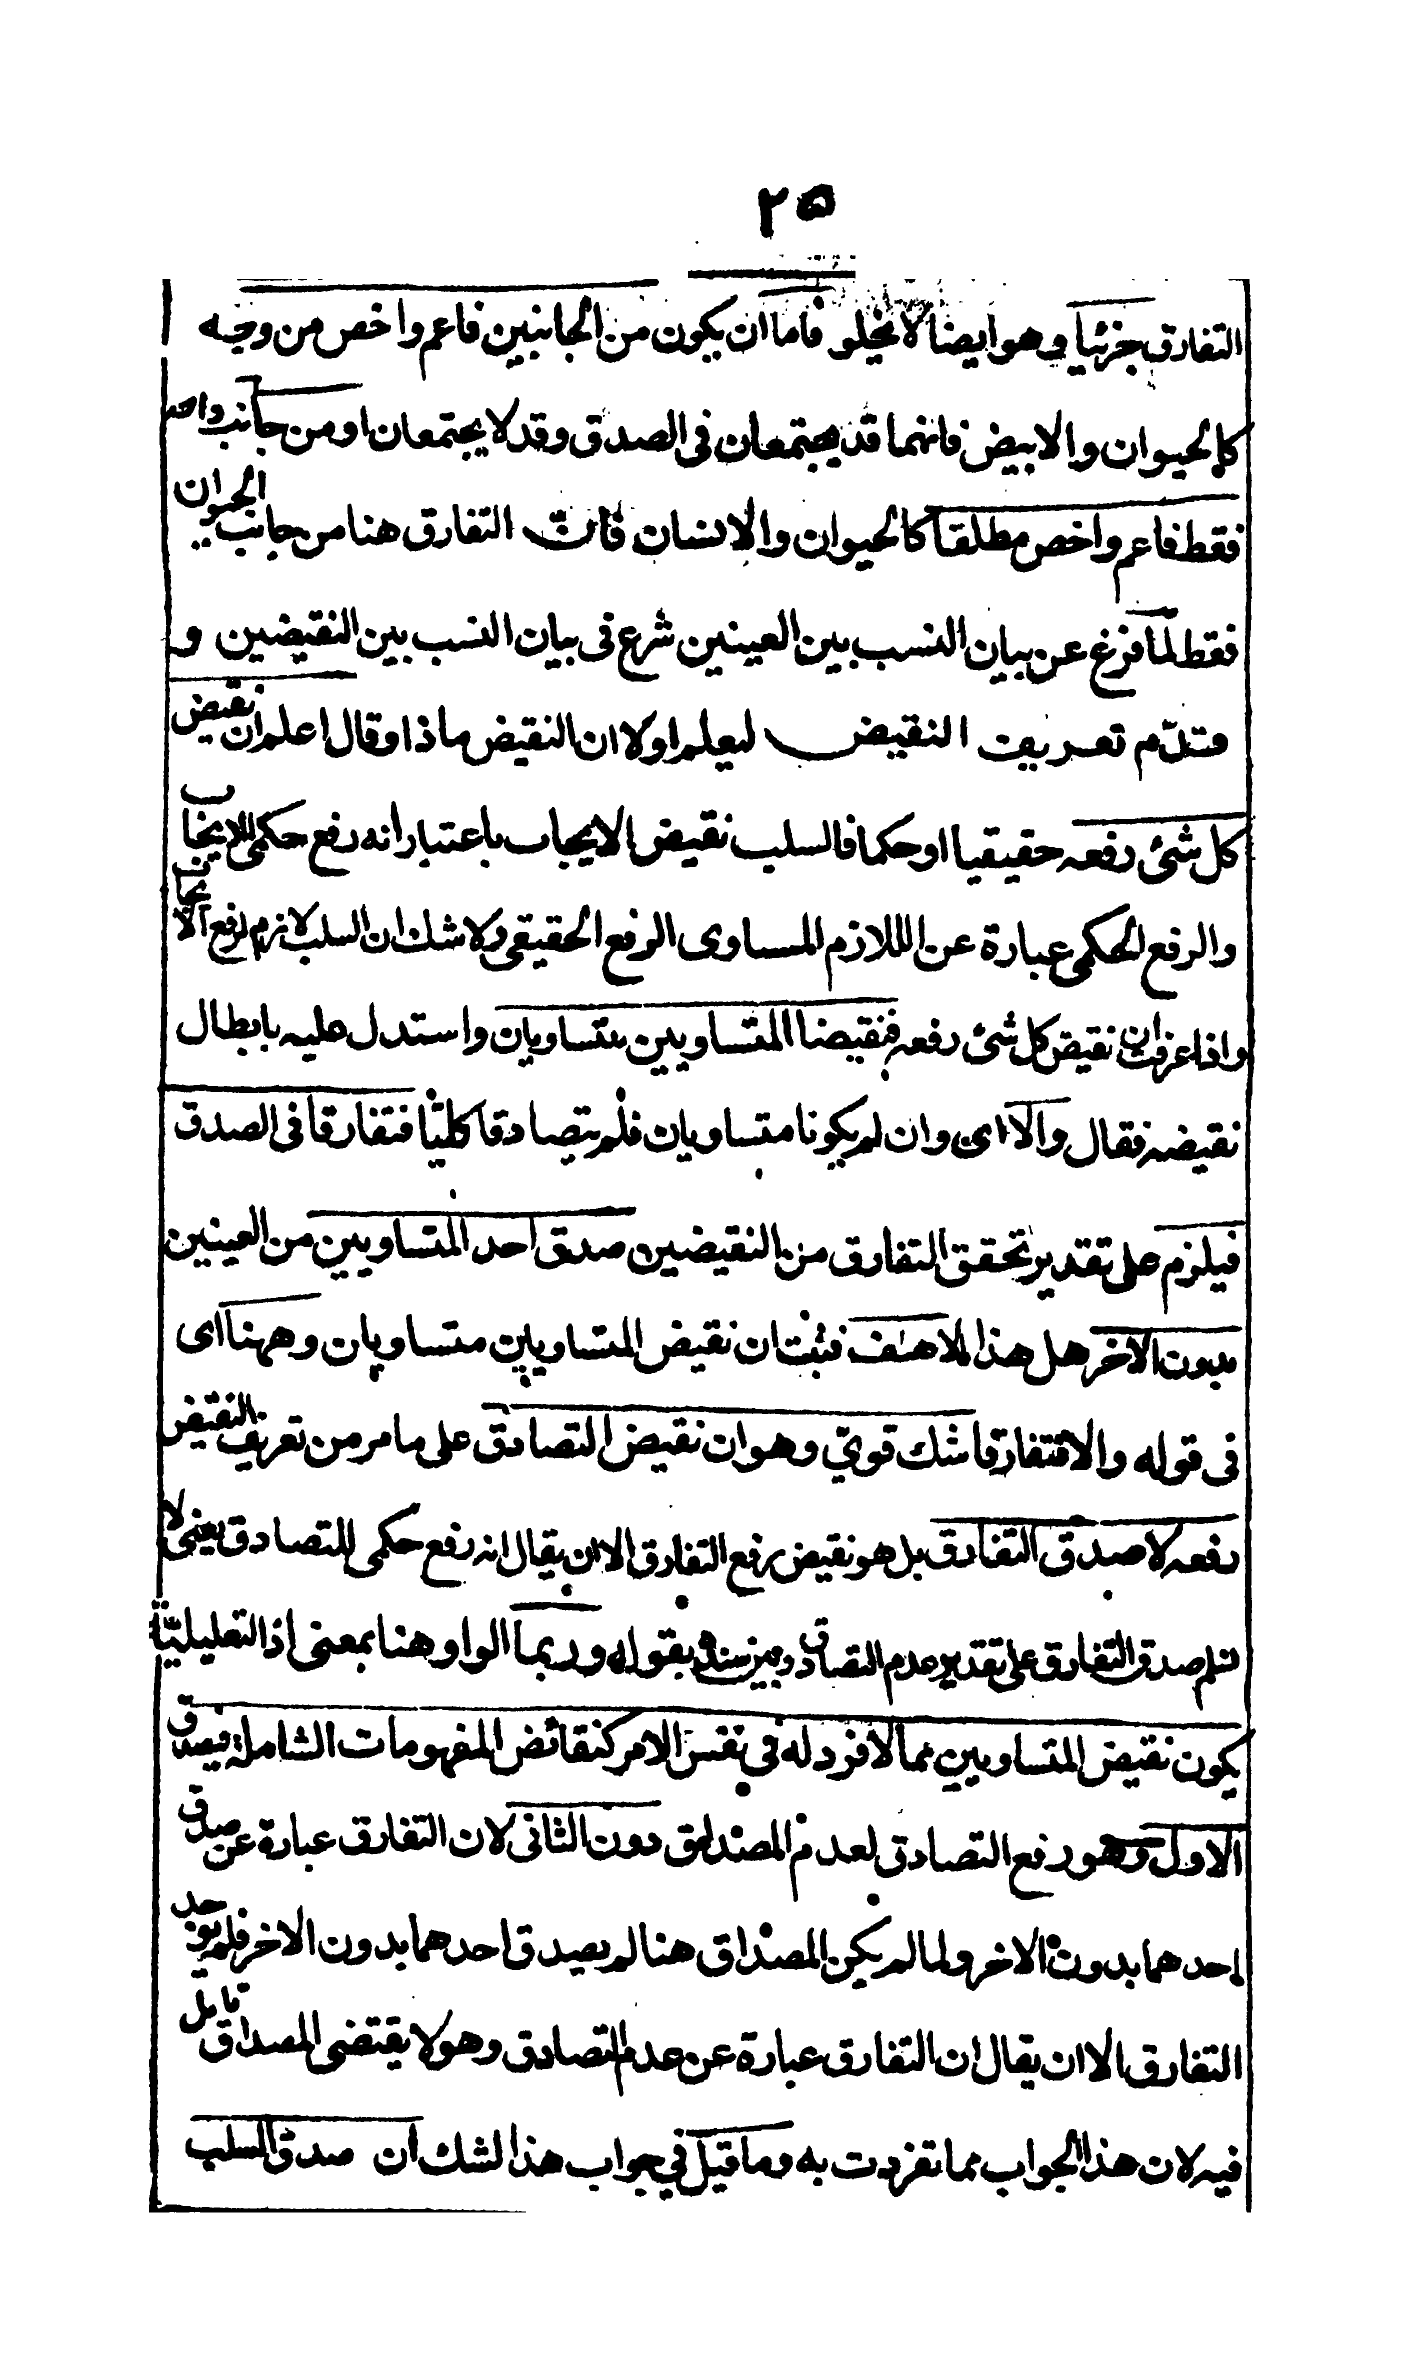 ۲۵
التفارق جزئيا وهو ايضا لا يخلو فاما ان يكون من الجانبين فاعم واخص من وجه
كالحيوان والابيض فانهما قد يجتمعان فى الصدق وقد لا يجتمعان او من جانب واحد
فقط فاعم واخص مطلقا كالحيوان والانسان فان التفارق هنا من جانب الحيوان
فقط لما فرغ عن بيان النسب بين العينين شرع فى بيان النسب بين النقيضين و
قدّم تعريف النقيض ليعلم اولا ان النقيض ماذا وقال اعلم ان نقيض
كل شئ رفعه حقيقيا او حكما فالسلب نقيض الايجاب باعتبار انه رفع حكمى للايجاب
والرفع الحكمى عبارة عن اللازم المساوى الرفع الحقيقى ولا شك ان السلب لازم لرفع الايجاب
واذا عرفت ان نقيض كل شئ رفعه فنقيضا المتساويين متساويان واستدل عليه بابطال
نقيضه فقال والا اى وان لم يكونا متساويان فلم يتصادقا كليّا فتفارقا فى الصدق
فيلزم على تقدير تحقق التفارق من النقيضين صدق احد المتساويين من العينين
بدون الاخر هل هذا الا هف فثبت ان نقيض المتساويين متساويان وههنا اى
فى قوله والا فتفارقا شك قوىّ وهو ان نقيض التصادق على ما مر من تعريف النقيض
رفعه لا صدق التفارق بل هو نقيض رفع التفارق الا ان يقال انه رفع حكمى للتصادق يعنى لا
نسلم صدق التفارق على تقدير عدم التصادق وبين سنده بقوله وربما الواو هنا بمعنى اذ التعليليّة
يكون نقيض المتساويين مما لا فرد له فى نفس الامر كنقائض المفهومات الشاملة فيصدق
الاول وهو رفع التصادق لعدم المصداق دون الثانى لان التفارق عبارة عن صدق
احدهما بدون الاخر ولما لم يكن المصداق هنا لم يصدق احدهما بدون الاخر فلم يوجد
التفارق الا ان يقال ان التفارق عبارة عن عدم التصادق وهو لا يقتضى المصداق تامل
فيه لان هذا الجواب مما تفردت به وما قيل في جواب هذا الشك ان صدق السلب